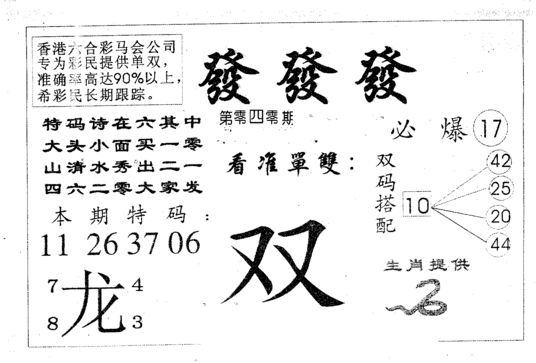 香港六合彩马会公司
专为彩民提供单双,
准确率高达90%以上,
希彩民长期跟踪。
發 發 發
第零四零期
特码诗在六其中
大头小面买一零
山清水秀出二一
四六二零大家发
看准單雙:
双
必爆 17
双码搭配
10
42
25
20
44
本期特码:
11 26 37 06
7 4
龙
8 3
生肖提供